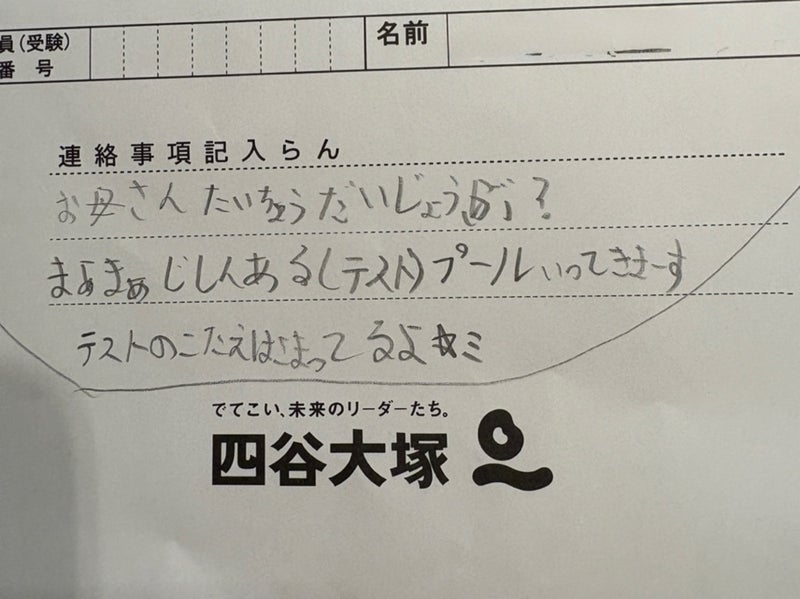 員(受験)
番 号
名前
連絡事項記入らん
お母さんたいちょうだいじょうぶ?
まぁまぁじしんある(テスト)プールいってきまーす
テストのこたえはさまってるよ☆ミ
でてこい、未来のリーダーたち。
四谷大塚